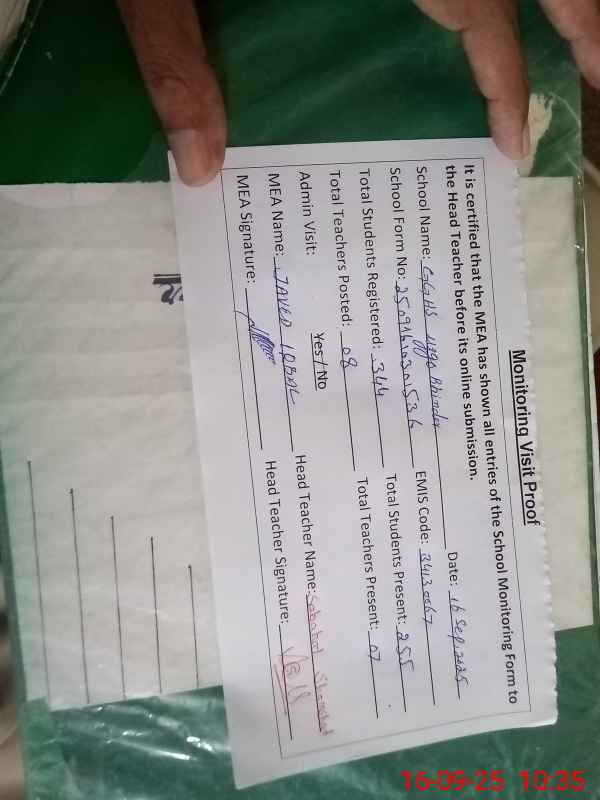 Monitoring Visit Proof
It is certified that the MEA has shown all entries of the School Monitoring Form to
the Head Teacher before its online submission.
Date: 16 Sep, 2025
School Name: GGHS Bhinder
EMIS Code: 34130067
School Form No:
Total Students Registered: 344
Total Students Present: 255
Total Teachers Posted: 08
Total Teachers Present: 07
Admin Visit: Yes / No
MEA Name: JAVED IQBAL
Head Teacher Name:
MEA Signature:
Head Teacher Signature:
16-09-25 10:35